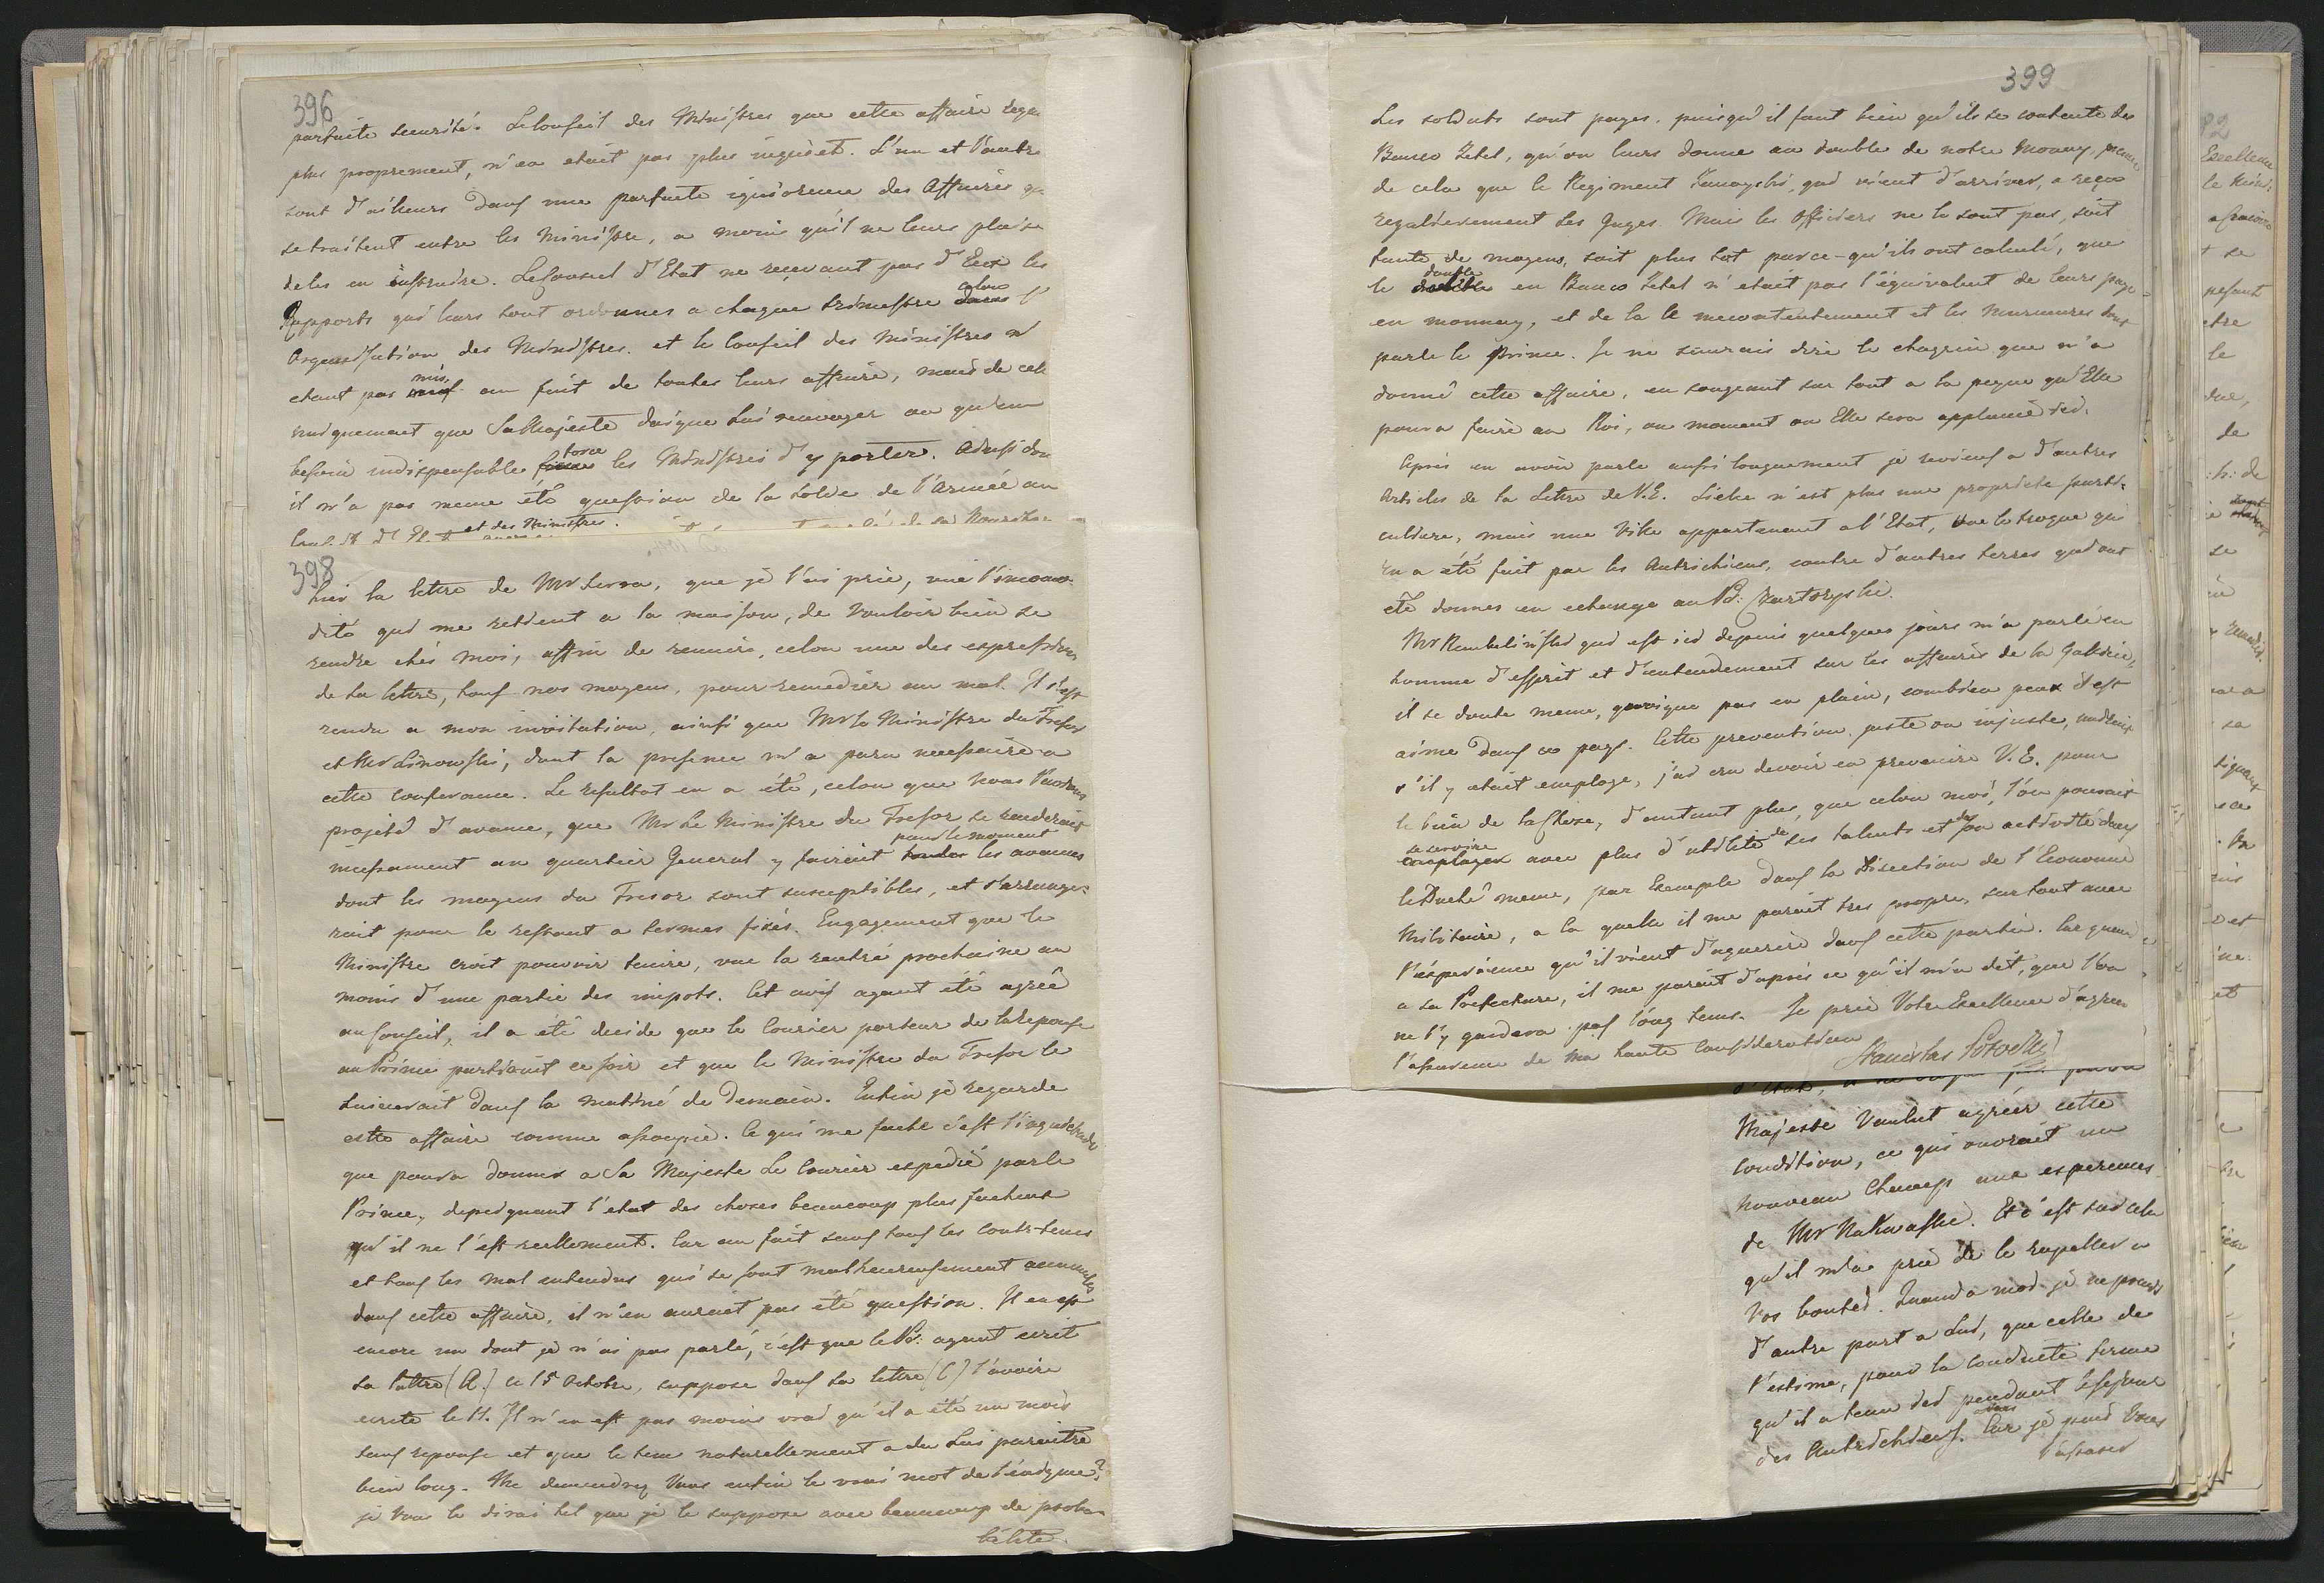 396
parfaite securité. Le Conseil des Ministres que cette affaire rega
plus proprement, n'en etait pas plus inquiet. L'un et l'autre
sont d'ailleurs dans une parfaite ignorence des Affaires qu
se traitent entre les Ministre, a moins qu'il ne leurs plaise
de les en instruire. Le Conseil d'Etat ne recevant pas d'Eux les
Rapports qui leurs sont ordonnes a chaque trimestre selon l'
Organisation des Ministres. et le Conseil des Ministres n'
etant pas mis au fait de toutes leurs affaire, mais de cell
uniquement que Sa Majesté daigne Lui renvoyer ou qu'un
besoin indispensable force les Ministres d'y porter. Aussi don
il n'a pas meme été question de la solde de l'Armée au
et des Ministres.
398
hier la lettre de Mr Serra, que je l'ai prie, vue l'incomo-
dité qui me retient a la maison, de vouloir bien se
rendre chés moi, affin de reunire, celon une des expressions
de sa lettre, tous nos moyens, pour remedier au mal. Il s'est
rendu a mon invitation, ainsi que Mr le Ministre du Tresor
et Mr Linowski, dont la presence m'a paru necessaire a
cette conference. Le resultat en a été, celon que nous l'avions
projeté d'avance, que Mr Le Ministre du Tresor se renderait
incessament au quartier General y fairait pour le moment les avances
dont les moyens du Tresor sont susceptibles, et s'arrange-
rait pour le restant a termes fixés. Engagement que le
Ministre croit pouvoir tenire, vue la rentré prochaine au
moins d'une partie des impots. Cet avis ayant été agréé
au Conseil, il a été decide que le Courier porteur de la reponse
au Prince partirait ce soir et que le Ministre du Tresor le
suiverait dans la matiné de Demain. Enfin je regarde
cette affaire comme assoupie. Ce qui me fache c'est l'inquietude
que poura donner a Sa Majesté Le Courier expedié par le
Prince, depeignant l'etat des choses beaucoup plus facheux
qu'il ne l'est reellement. Car au fait sans tous les Contr-tems
et tous les mal entendus qui se sont malheureusement accumulés
dans cette affaire, il n'en aurait pas été question. Il en est
encore un dont je n'ai pas parlé, c'est que le Pce: ayant ecrit
sa lettre (A.) ce 15 Octobre, suppose dans sa lettre (C) l'avoire
ecrite le 11. Il n'en est pas moins vrai qu'il a été un mois
sans reponse et que le tems naturellement a du Lui paraitre
bien long. Me demendrez Vous enfin le vrai mot de l'enigme?
je Vous le dirai tel que je le suppose avec beaucoup de proba-
bilité.
399
Les soldats sont payes. puisqu'il faut bien qu'ils se contente des
Banco Zetel, qu'on leurs donne au double de notre monay, preuve
de cela que le Regiment Zamoyski, qui vient d'arriver, a reçu
regulierement Ses Gages. Mais les Officiers ne le sont pas, soit
faute de moyens, soit plus tot parce-qu'ils ont calculé, que
le double en Banco Zetel n'etait pas l'équivalent de leurs paye
en monnay, et de la le mecontentement et les Murmures dont
parle le Prince. Je ne saurais dire le chagrin que m'a
donné cette affaire, en songeant sur tout a la peyne qu'Elle
poura faire au Roi, au moment ou Elle sera applanie ici.
Après en avoir parle aussi longuement je reviens a d'autres
Articles de la Lettre de V. E. n'est plus une proprieté parti-
culiere, mais une Ville appartenant a l'Etat, vue le troque qui
en a été fait par les Autrichiens, contre d'autres terres qui ont
été donnes en echange au Pce: Czartoryski.
Mr Rembelinski qui est ici depuis quelques jours m'a parlé en
homme d'esprit et d'entendement sur les affaires de la Galicie,
il se doute meme, quoique pas en plain, combien peux il est
aimé dans ce pays. Cette prevention juste ou injuste, nuirait
s'il y etait employe, j'ai cru devoir en prevenire V. E. pour
le bien de la Chose, d'autant plus, que celon moi, l'on pourait
se servire avec plus d'utilité de ses talents et de son activité dans
le Duché meme, par Exemple dans la Direction de l'Economie
Militaire, a la quelle il me parait tres propre, surtout avec
l'experience qu'il vient d'aquerire dans cette partie. Car quand
a sa Prefecture, il me parait d'apres ce qu'il m'a dit, que l'on
ne l'y gardera pas long tems. Je prie Votre Excellence d'agreer
l'assurence de ma haute Consideration
Stanislas Potocki
Majesté Voulut agréer cette
Condition, ce qui ouvrait un
nouveau Champ aux esperences
de Mr Nakwaski. Et c'est sur cela
qu'il m'a prié de le rapeller a
Vos bontés. Quand a moi je ne prends
d'autre part a Lui, que celle de
l'estime, pour la conduite ferme
qu'il a tenu ici pendant le sejour
des Autrichiens. Car je puis Vous
l'assurer
Excellence